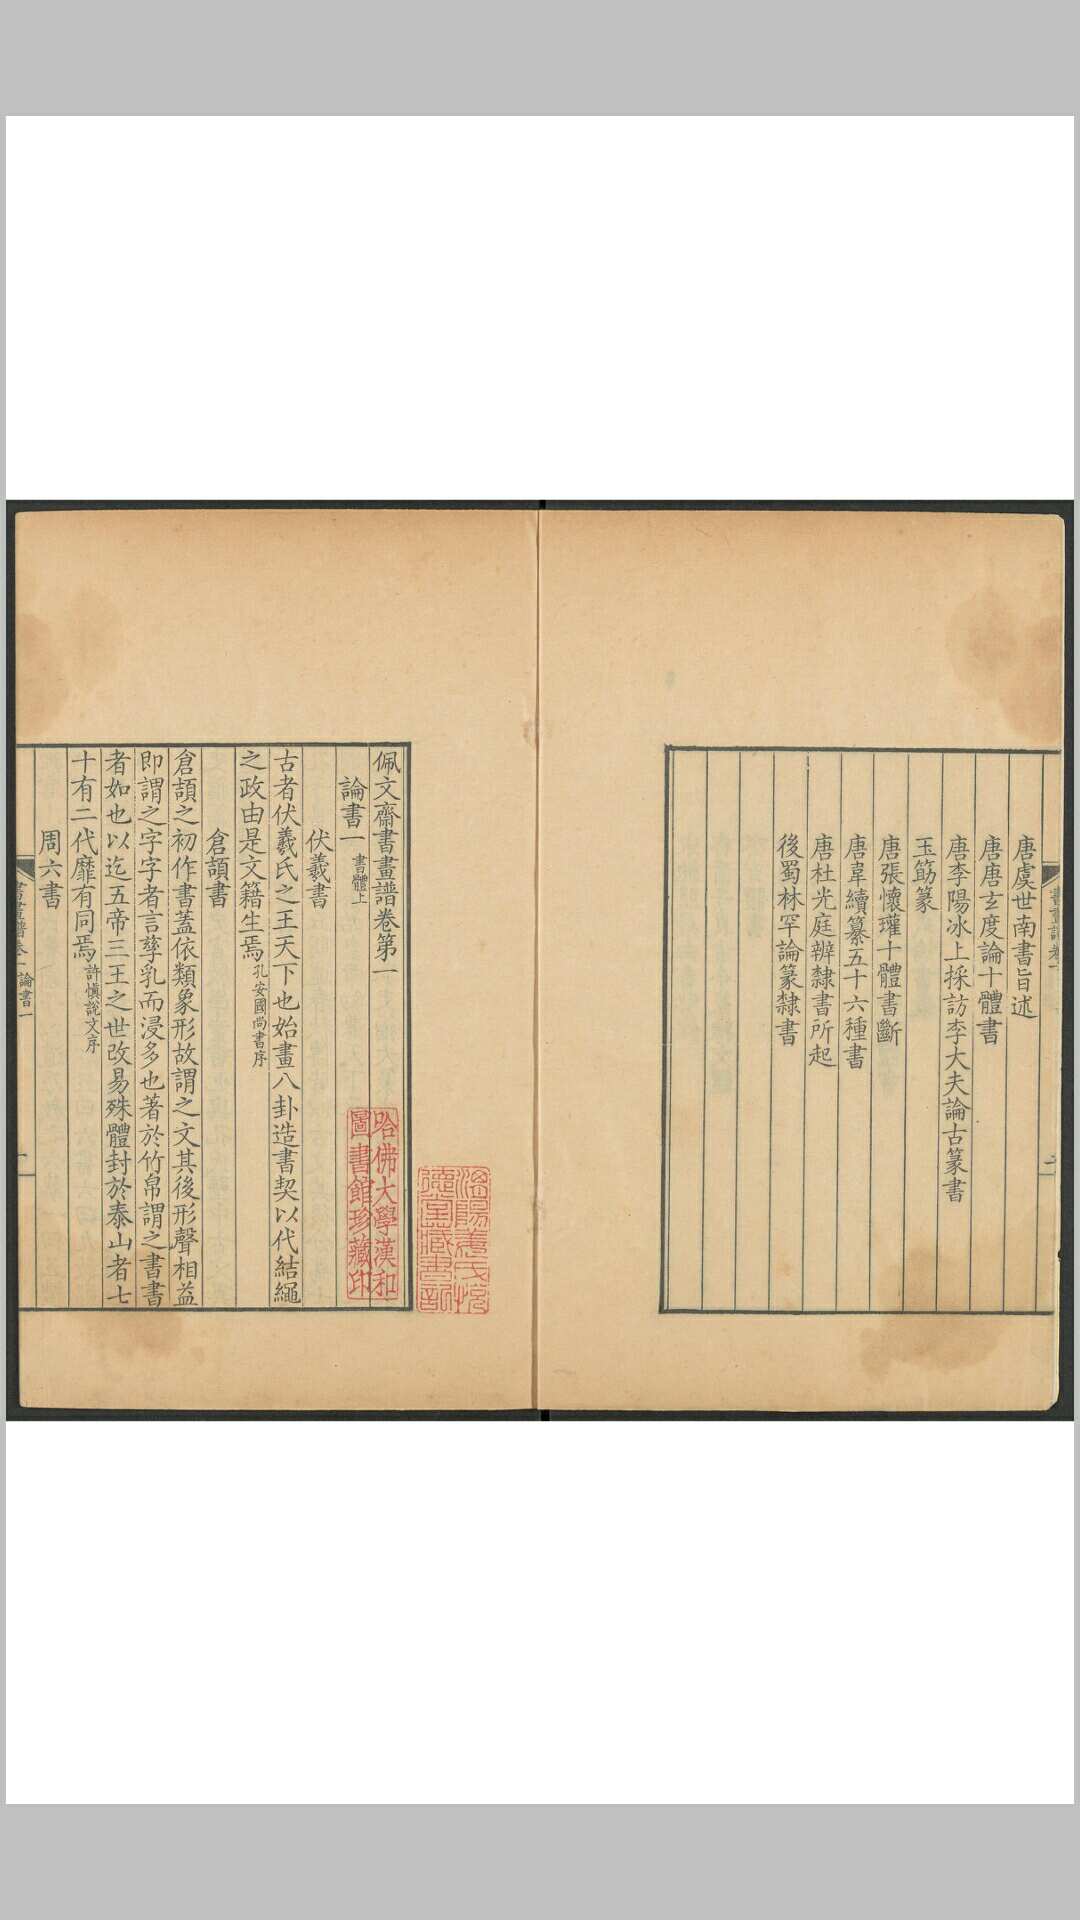 唐虞世南書旨述
唐唐玄度論十體書
唐李陽冰上採訪李大夫論古篆書
玉筯篆
唐張懷瓘十體書斷
唐韋續纂五十六種書
唐杜光庭辨隸書所起
後蜀林罕論篆隸書
佩文齋書畫譜卷第一
論書一 書體上
伏羲書
古者伏羲氏之王天下也始畫八卦造書契以代結繩
之政由是文籍生焉 孔安國尚書序
倉頡書
倉頡之初作書蓋依類象形故謂之文其後形聲相益
即謂之字字者言孳乳而浸多也著於竹帛謂之書書
者如也以迄五帝三王之世改易殊體封於泰山者七
十有二代靡有同焉 許愼說文序
周六書
書畫譜卷一 論書一 一
哈佛大學漢和
圖書館珍藏印